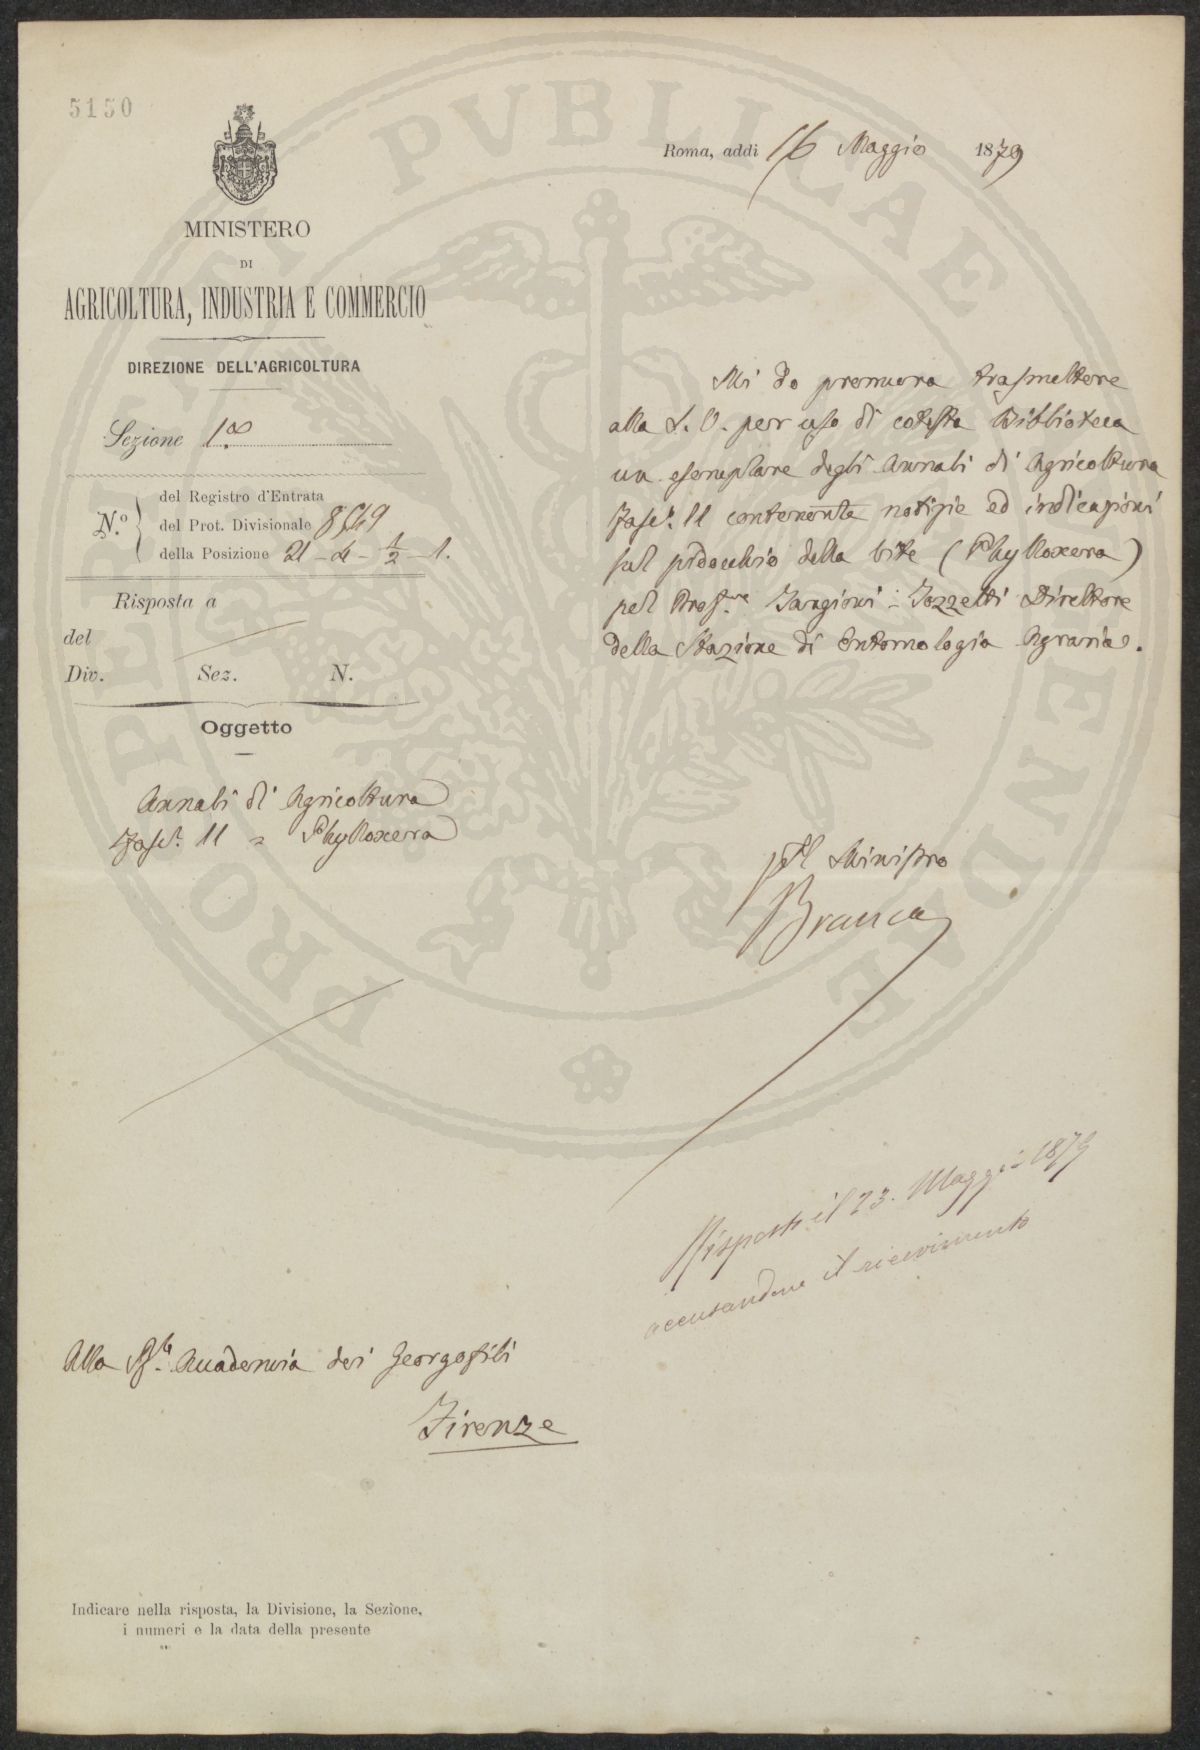 5150
Roma, addi 16 Maggio 1879
MINISTERO
DI
AGRICOLTURA, INDUSTRIA E COMMERCIO
DIREZIONE DELL'AGRICOLTURA
Sezione 1.a
N.o
del Registro d'Entrata
del Prot. Divisionale 8549
della Posizione 21 - 4 - 1/2 - 1.
Risposta a
del
Div. Sez. N.
Oggetto
Annali di Agricoltura
Fasc. 11 = Phylloxera
Mi do premura trasmettere
alla S. V. per uso di cotesta Biblioteca
un esemplare degli Annali di Agricoltura
Fasc. 11 contenente notizie ed indicazioni
sul pidocchio della vite (Phylloxera)
pel Prof.re Targioni-Tozzetti Direttore
della Stazione di Entomologia Agraria.
pel Ministro
Branca
Risposto il 23. Maggio 1879
accusandone il ricevimento
Alla Accademia dei Georgofili
Firenze
Indicare nella risposta, la Divisione, la Sezione,
i numeri e la data della presente
PROSPERITATI PVBLICAE AVGENDAE